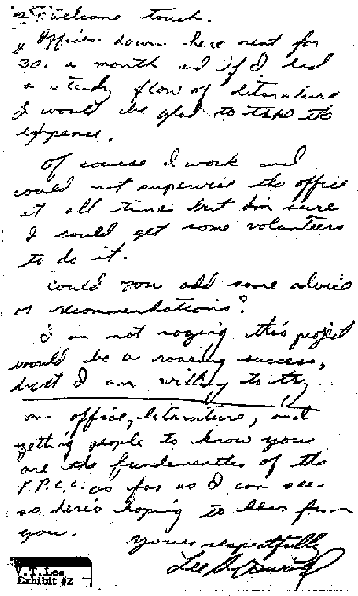 welcome touch.
Offices down here rent for
30. a month and if I had
a steady flow of literature
I would be glad to take the
expense.
Of course I work and
could not supervise the office
at all times but I'm sure
I could get some volunteers
to do it.
Could you add some advice
or recommendations?
I am not saying this project
would be a roaring success,
but I am willing to try
an office, literature, and
getting people to know you
are the fundamentles of the
F.P.C.C. as far as I can see
so here's hoping to hear from
you.
yours respectfully
Lee H. Oswald
V.T.Lee
Exhibit #2